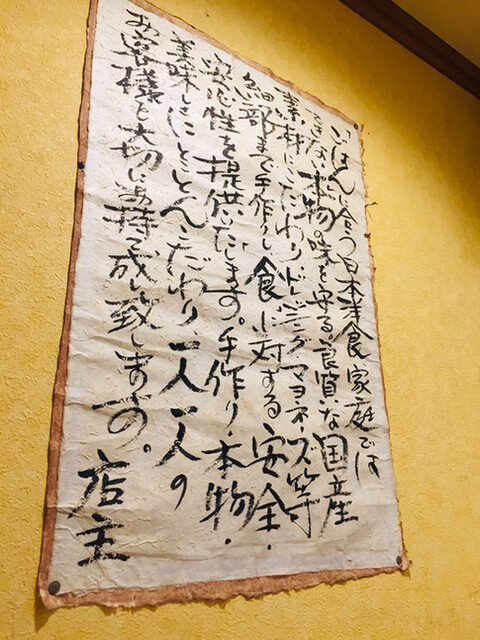 ごはんに合う日本洋食 家庭では
できない本物の味を守る。良質な国産
素材にこだわりドレッシング・マヨネーズ等
細部まで手作りし食に対する安全・
安心性を提供いたします。手作り・本物・
美味しさにとことんこだわり一人一人の
お客様を大切にお持て成し致します。
店主